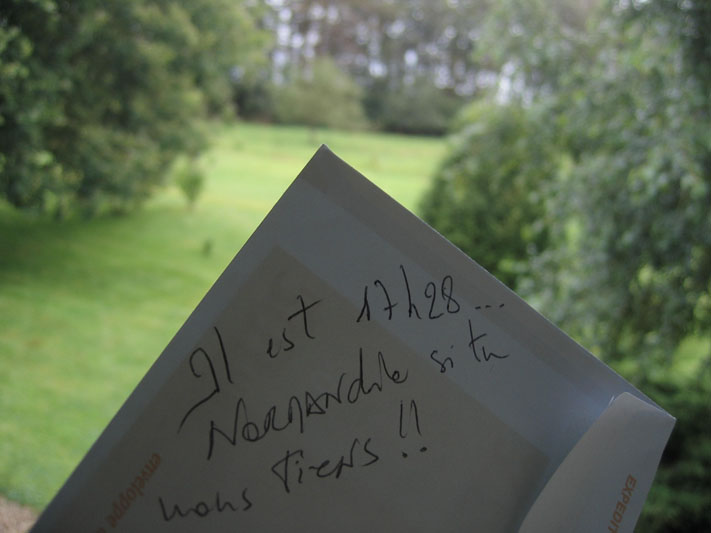 Il est 17h28...
NORMANDIE si tu
nous tiens !!
enveloppe
EXPEDIT